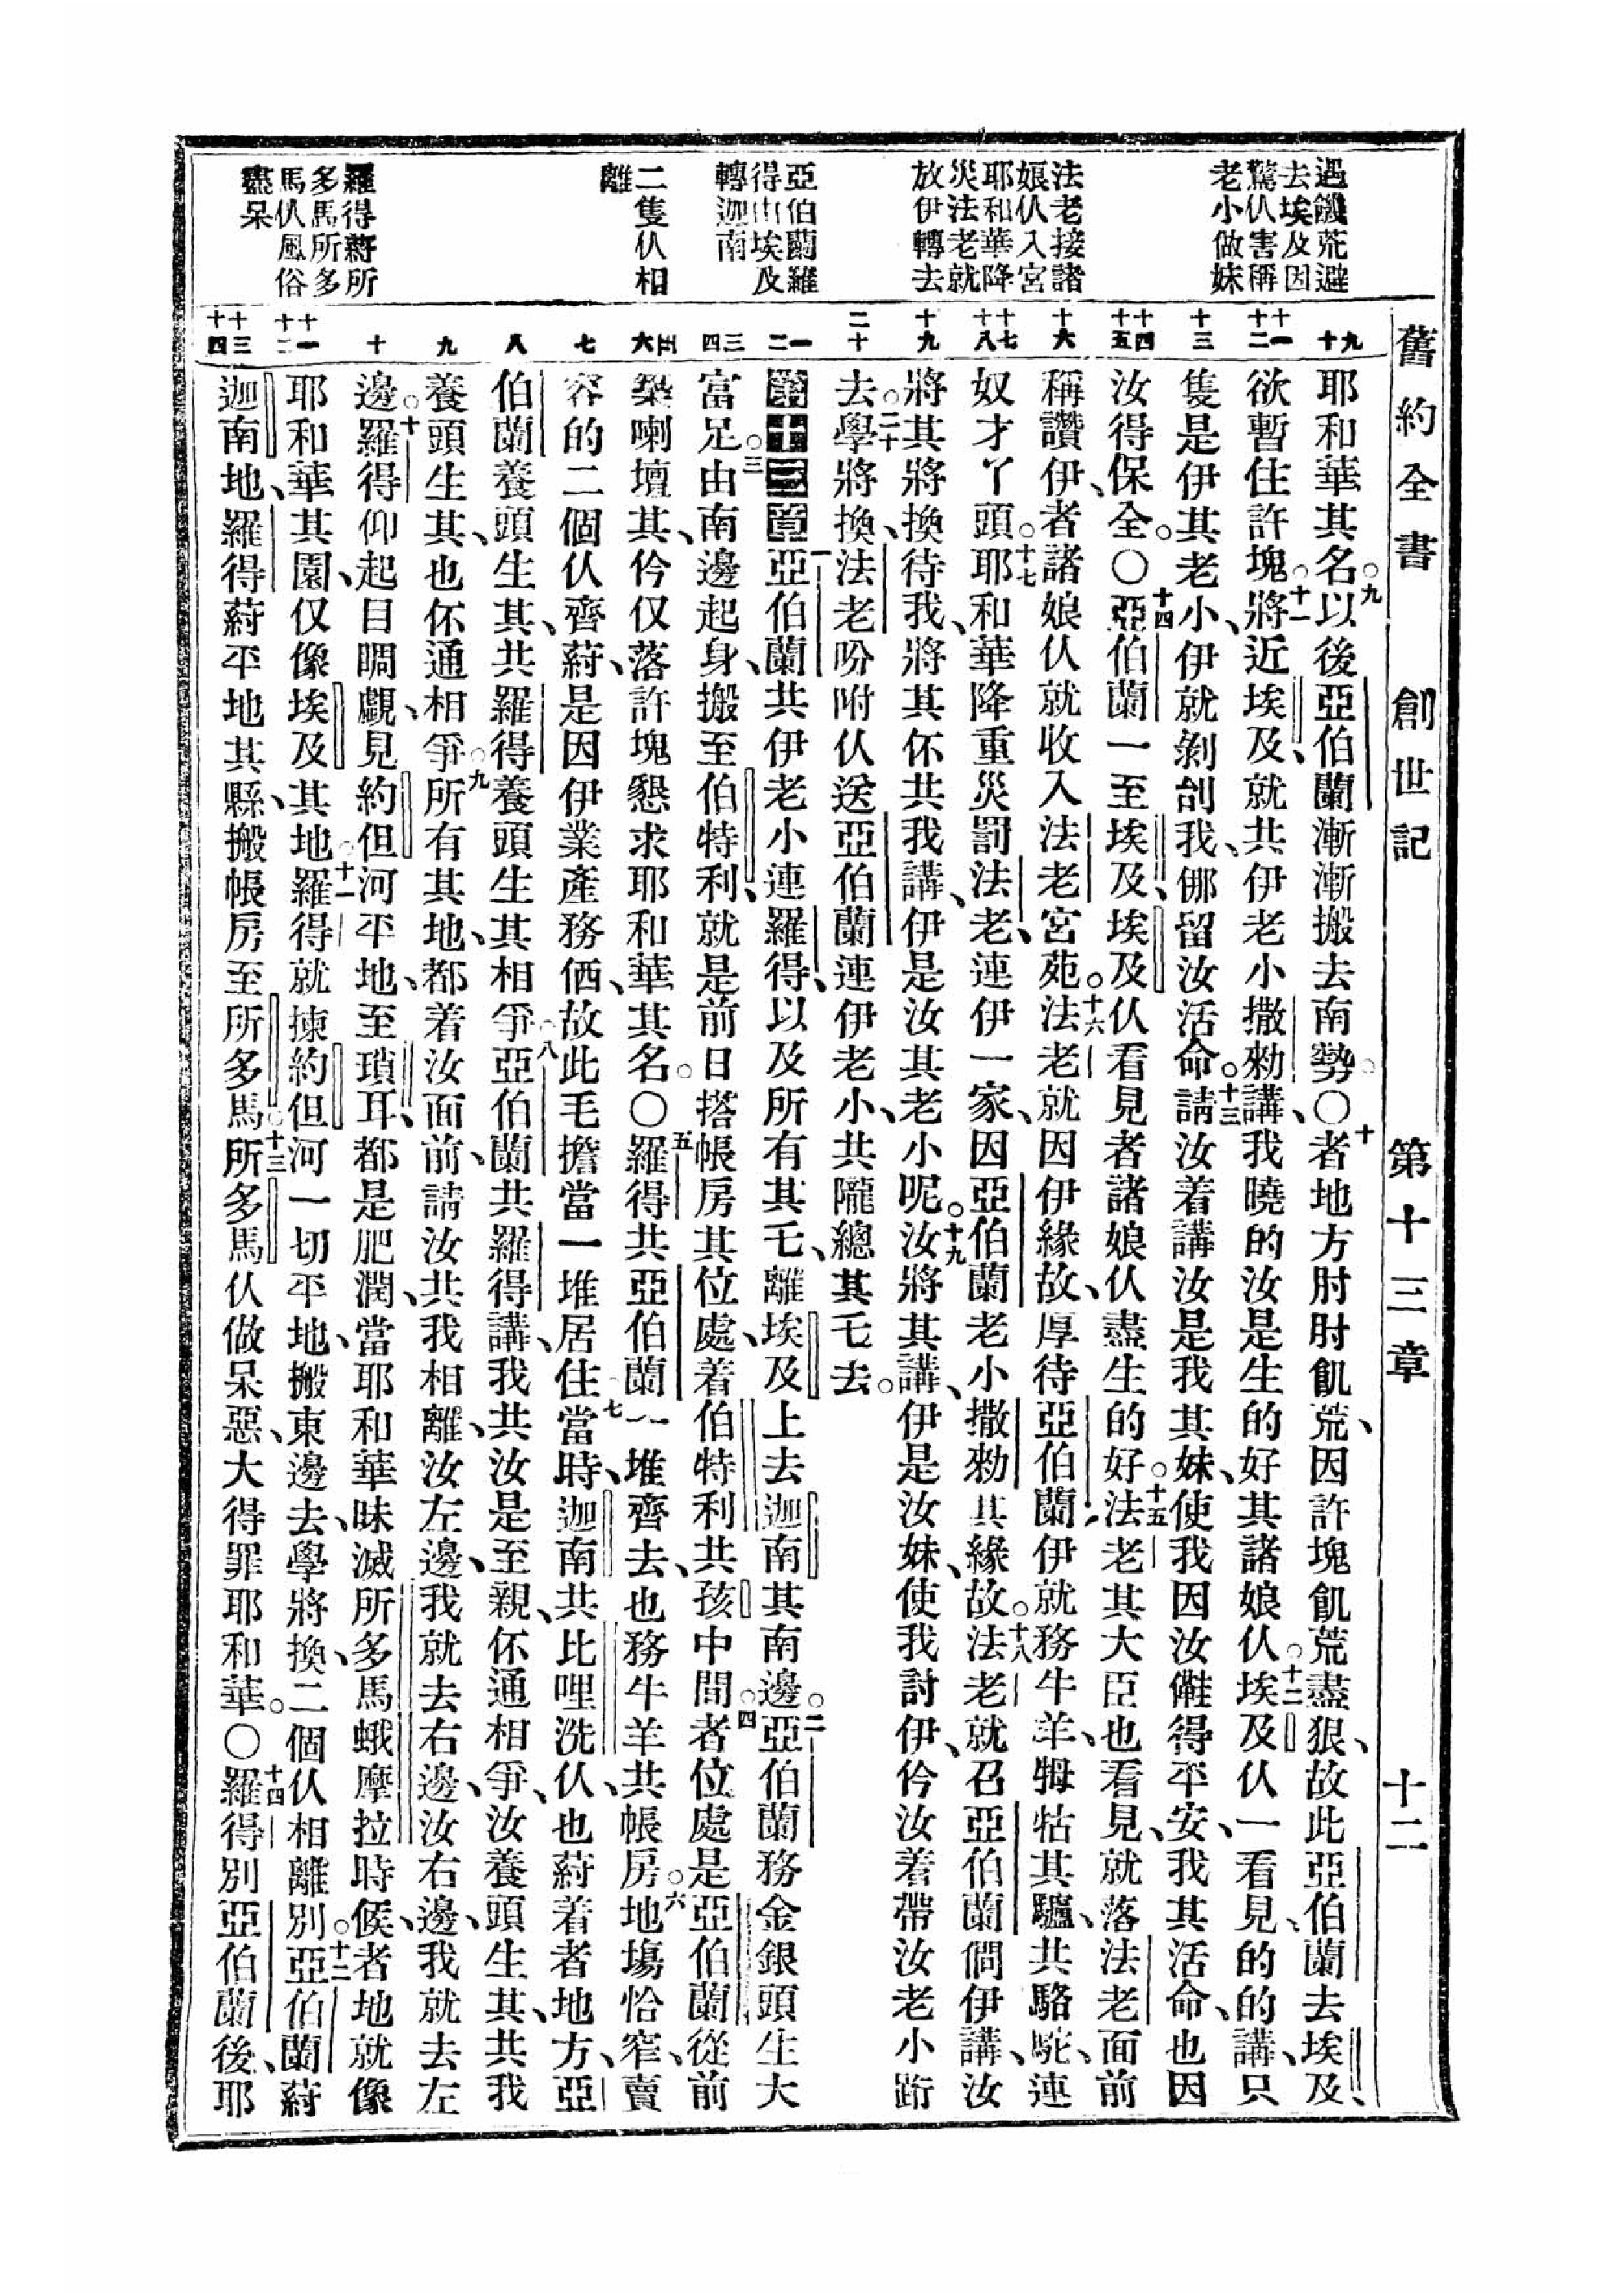 舊約全書 創世記 第十三章 十二
遇饑荒避
去埃及因
驚伙害稱
老小做妹
法老接諸
娘伙入宮
耶和華降
災法老就
放伊轉去
亞伯蘭羅
得由埃及
轉迦南
二隻伙相
離
羅得蒞所
多馬所多
馬伙風俗
盡呆
九 十
十一 十二
十三
十四 十五
十六
十七 十八
十九
二十
一 二
三 四
五 六
七
八
九
十
十一 十二
十三 十四
耶和華其名。○九以後亞伯蘭漸漸搬去南勢。○十者地方肘肘飢荒、因許塊飢荒盡狠、故此亞伯蘭去埃及、
欲暫住許塊。○十一將近埃及、就共伊老小撒勑講、我曉的汝是生的好其諸娘伙。○十二埃及伙一看見、的的講、只
隻是伊其老小、伊就剝刣我、㑚留汝活命。十三請汝着講汝是我其妹、使我因汝㒙得平安、我其活命、也因
汝得保全。○十四亞伯蘭一至埃及、埃及伙看見者諸娘伙盡生的好。○十五法老其大臣也看見、就落法老面前
稱讚伊、者諸娘伙就收入法老宮苑。十六法老就因伊緣故、厚待亞伯蘭、伊就務牛羊、牳牯其驢、共駱駝、連
奴才丫頭。○十七耶和華降重災罰法老、連伊一家、因亞伯蘭老小撒勑其緣故。○十八法老就召亞伯蘭、問伊講、汝
將其將換待我、將其伓共我講、伊是汝其老小呢。十九汝將其講、伊是汝妹、使我討伊、仱汝着帶汝老小跡
去。○二十學將換、法老吩咐伙送亞伯蘭連伊老小、共隴總其乇去。
第十三章 一亞伯蘭共伊老小連羅得、以及所有其乇、離埃及上去迦南其南邊。○二亞伯蘭務金銀頭生大
富足。○三由南邊起身、搬至伯特利、就是前日搭帳房其位處、着伯特利共孩中間。○四者位處是亞伯蘭從前
築喇壇其、仱仅落許塊懇求耶和華其名。○五羅得共亞伯蘭一堆齊去、也務牛羊共帳房。○六地塲恰窄、賣
容的二個伙齊蒞、是因伊業產務価、故此毛擔當一堆居住。七當時、迦南共比哩洗伙、也蒞着者地方、亞
伯蘭養頭生其、共羅得養頭生其相爭。○八亞伯蘭共羅得講、我共汝是至親、伓通相爭、汝養頭生其、共我
養頭生其、也伓通相爭。○九所有其地、都着汝面前、請汝共我相離、汝左邊、我就去右邊、汝右邊、我就去左
邊。○十羅得仰起目瞯、覷見約但河平地、至瑣耳、都是肥潤、當耶和華昧滅所多馬蛾摩拉時候、者地就像
耶和華其園、仅像埃及其地。○十一羅得就揀約但河一切平地、搬東邊去、學將換、二個伙相離別。○十二亞伯蘭蒞
迦南地、羅得蒞平地其縣、搬帳房至所多馬。○十三所多馬伙做呆惡、大得罪耶和華。○十四羅得別亞伯蘭後、耶